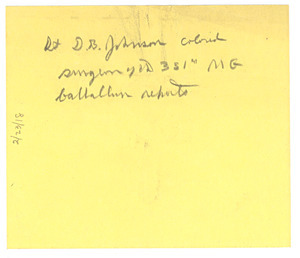 Lt D.B. Johnson colored
surgeon of 351st MG
battallion reports